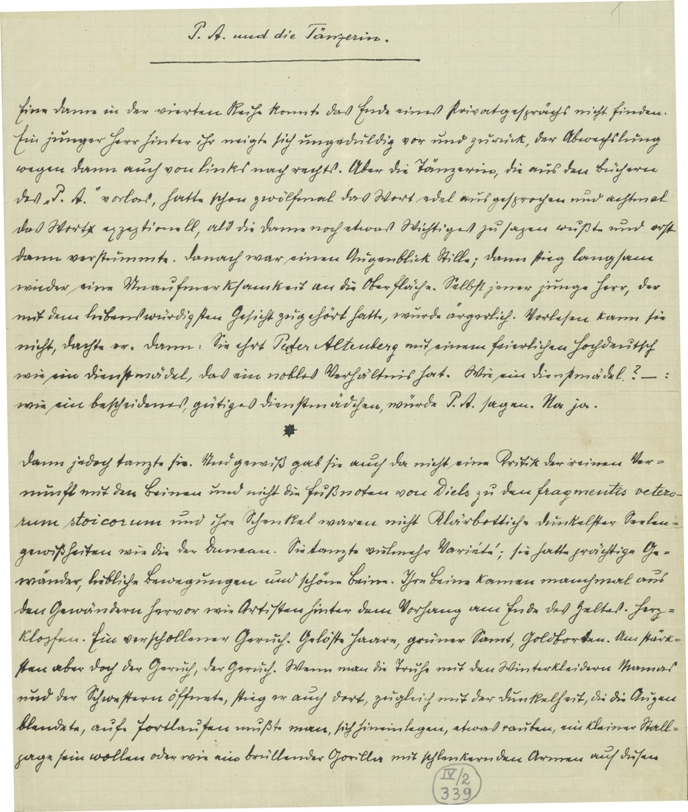 P. A. und die Tänzerin.
Eine Dame in der vierten Reihe konnte das Ende eines Privatgesprächs nicht finden.
Ein junger Herr hinter ihr neigte sich ungeduldig vor und zurück, der Abwechslung
wegen dann auch von links nach rechts. Aber die Tänzerin, die aus den Büchern
des „P. A." vorlas, hatte schon zwölfmal das Wort edel ausgesprochen und achtmal
das Wort exzeptionell, als die Dame noch etwas Wichtiges zu sagen wußte und erst
dann verstummte. Danach war einen Augenblick Stille; dann stieg langsam
wieder eine Unaufmerksamkeit an die Oberfläche. Selbst jener junge Herr, der
mit dem liebenswürdigsten Gesicht zugehört hatte, wurde ärgerlich. Vorlesen kann sie
nicht, dachte er. Dann: Sie ehrt Peter Altenberg mit einem feierlichen Hochdeutsch
wie ein Dienstmädel, das ein nobles Verhältnis hat. Wie ein Dienstmädel? — :
wie ein bescheidenes, gütiges Dienstmädchen, würde P. A. sagen. Na ja.
*
Dann jedoch tanzte sie. Und gewiß gab sie auch da nicht eine Kritik der reinen Ver-
nunft mit den Beinen und nicht die Fußnoten von Diels zu den fragmentis veter-
rum stoicorum und ihre Schenkel waren nicht Klärbottiche dunkelster Seelen-
gewißheiten wie die der Duncan. Sie tanzte vielmehr Varieté; sie hatte prächtige Ge-
wänder, liebliche Bewegungen und schöne Beine. Ihre Beine kamen manchmal aus
den Gewändern hervor wie Artisten hinter dem Vorhang am Ende des Zeltes. Herz-
klopfen. Ein verschollener Geruch. Gelöste Haare, grüner Samt, Goldborten. Am stärk-
sten aber doch der Geruch, der Geruch. Wenn man die Truhe mit den Winterkleidern Mamas
und der Schwestern öffnete, stieg er auch dort, zugleich mit der Dunkelheit, die die Augen
blendete, auf: fortlaufen mußte man, sich hineinlegen, etwas rauben, ein kleiner Stall-
page sein wollen oder wie ein brüllender Gorilla mit schlenkernden Armen auf diesen
IV/2
339